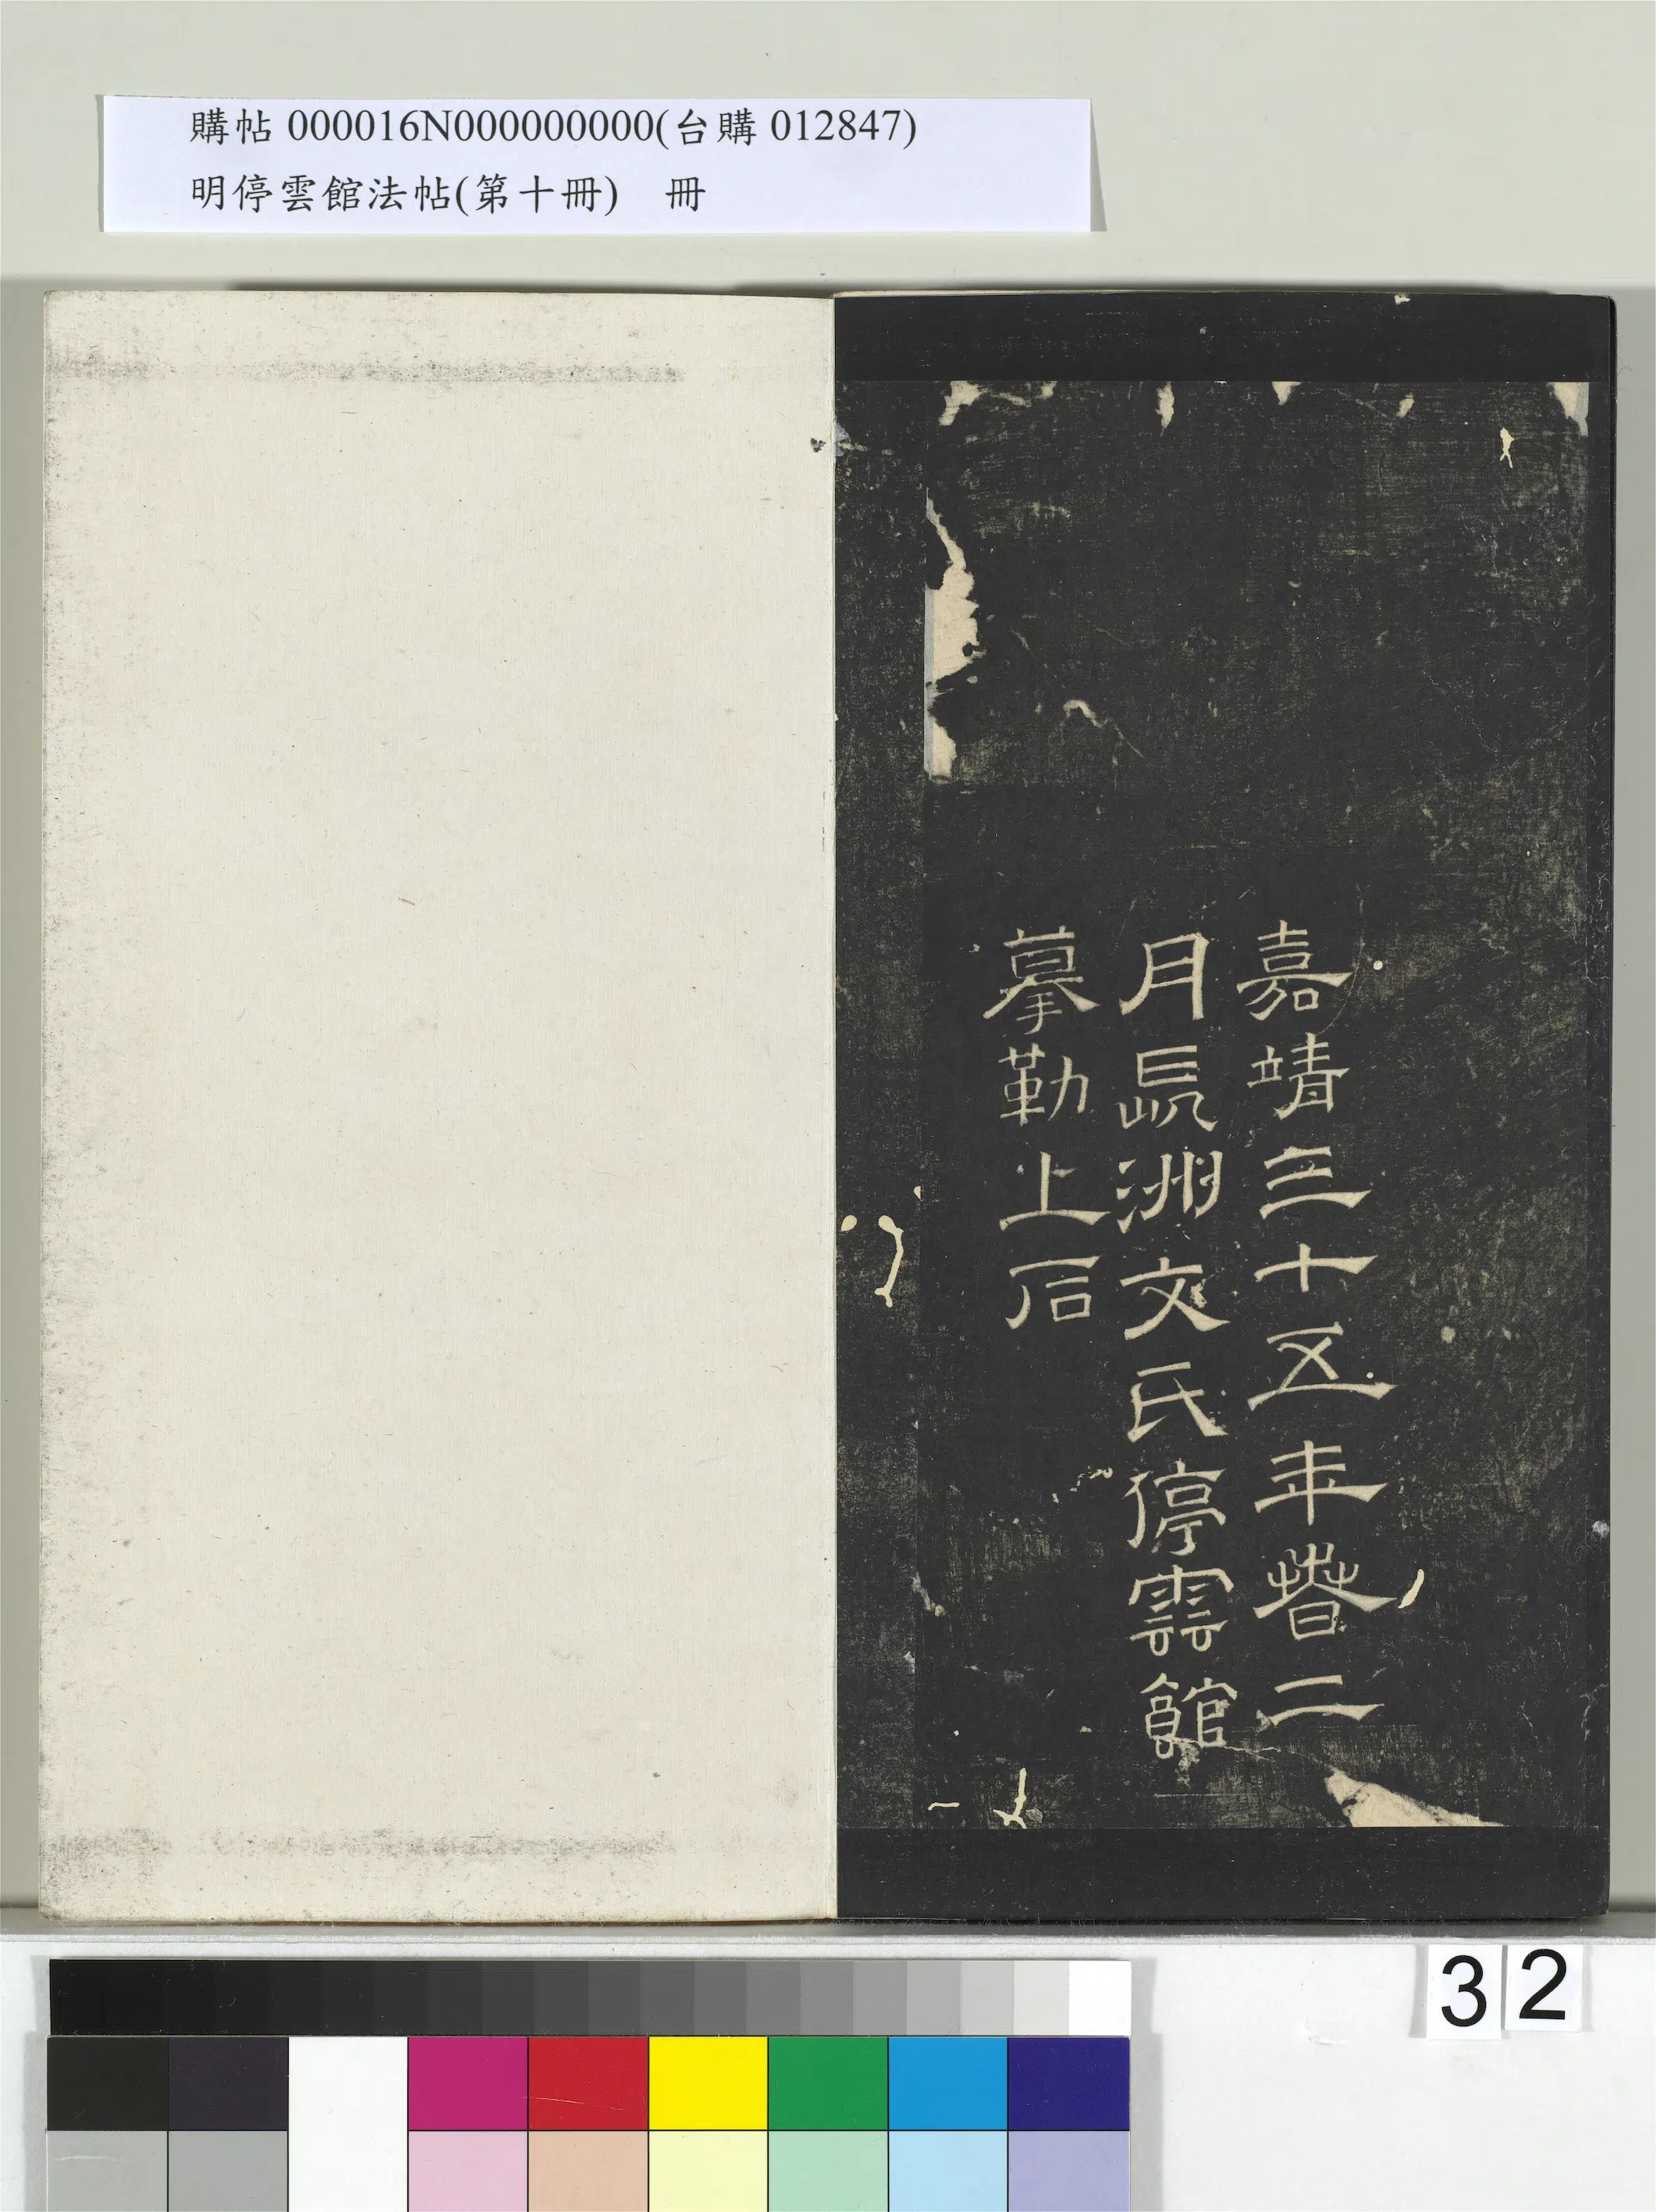 購帖 000016N000000000(台購 012847)
明停雲館法帖(第十冊)　冊
嘉靖三十五年春二
月長洲文氏停雲館
摹勒上石
32